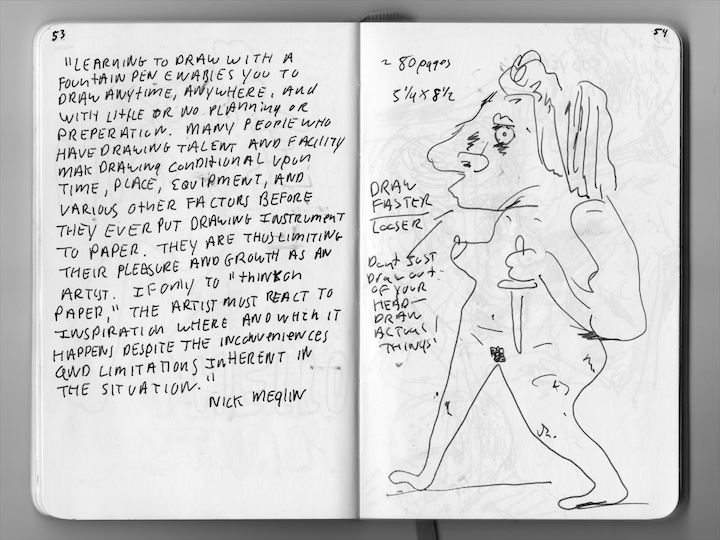 53
"LEARNING TO DRAW WITH A
FOUNTAIN PEN ENABLES YOU TO
DRAW ANYTIME, ANYWHERE, AND
WITH LITTLE OR NO PLANNING OR
PREPERATION. MANY PEOPLE WHO
HAVE DRAWING TALENT AND FACILITY
MAK DRAWING CONDITIONAL UPON
TIME, PLACE, EQUIPMENT, AND
VARIOUS OTHER FACTORS BEFORE
THEY EVER PUT DRAWING INSTRUMENT
TO PAPER. THEY ARE THUS LIMITING
THEIR PLEASURE AND GROWTH AS AN
ARTIST. IF ONLY TO "THINK ON
PAPER," THE ARTIST MUST REACT TO
INSPIRATION WHERE AND WHEN IT
HAPPENS DESPITE THE INCONVENIENCES
AND LIMITATIONS INHERENT IN
THE SITUATION."
NICK MEGLIN
54
~ 80 pages
5 1/4 x 8 1/2
DRAW
FASTER
LOOSER
Don't JUST
Draw out
OF YOUR
HEAD—
DRAW
ACTUAL
THINGS!